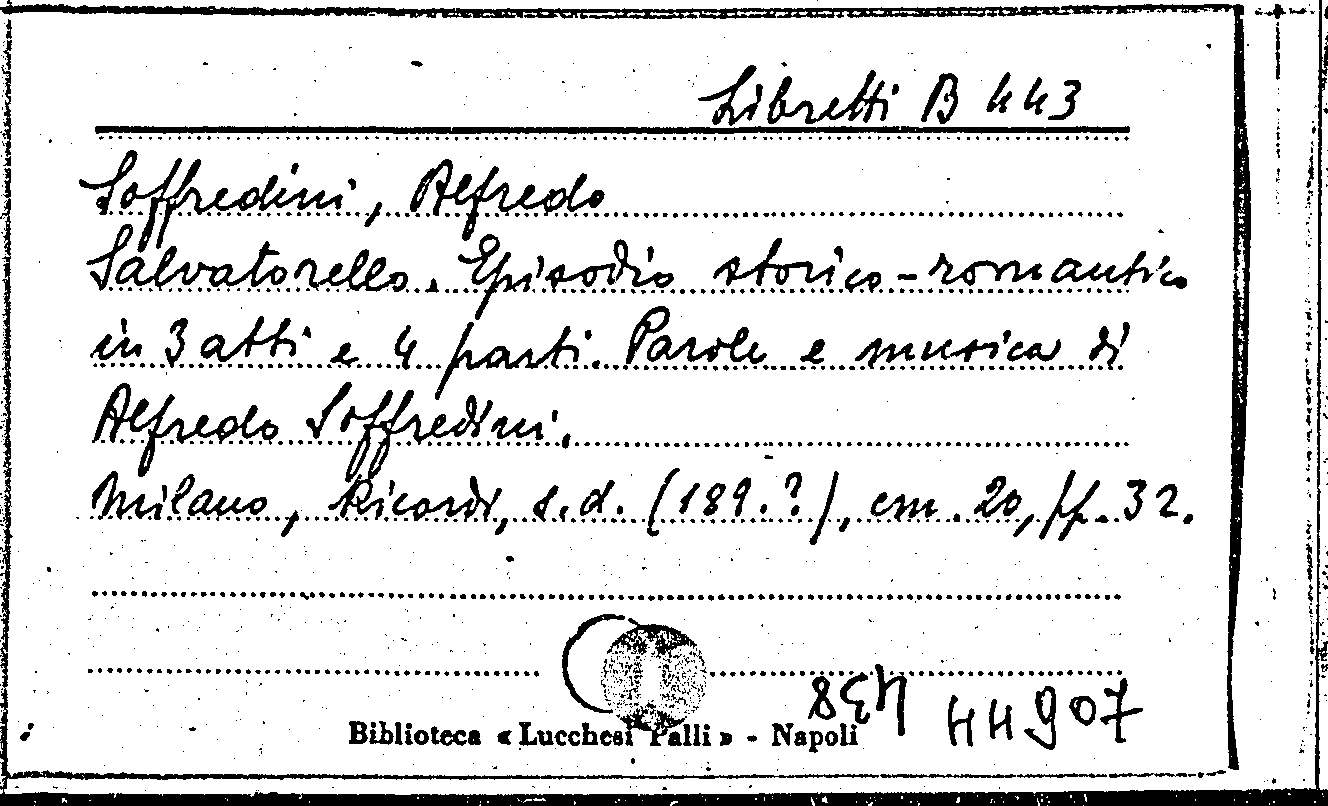 Libretti B 443
Soffredini, Alfredo
Salvatorello. Episodio storico-romantico
in 3 atti e 4 parti. Parole e musica di
Alfredo Soffredini.
Milano, Ricordi, s.d. (189.?), cm. 20, pp. 32.
44907
Biblioteca « Lucchesi Palli » - Napoli